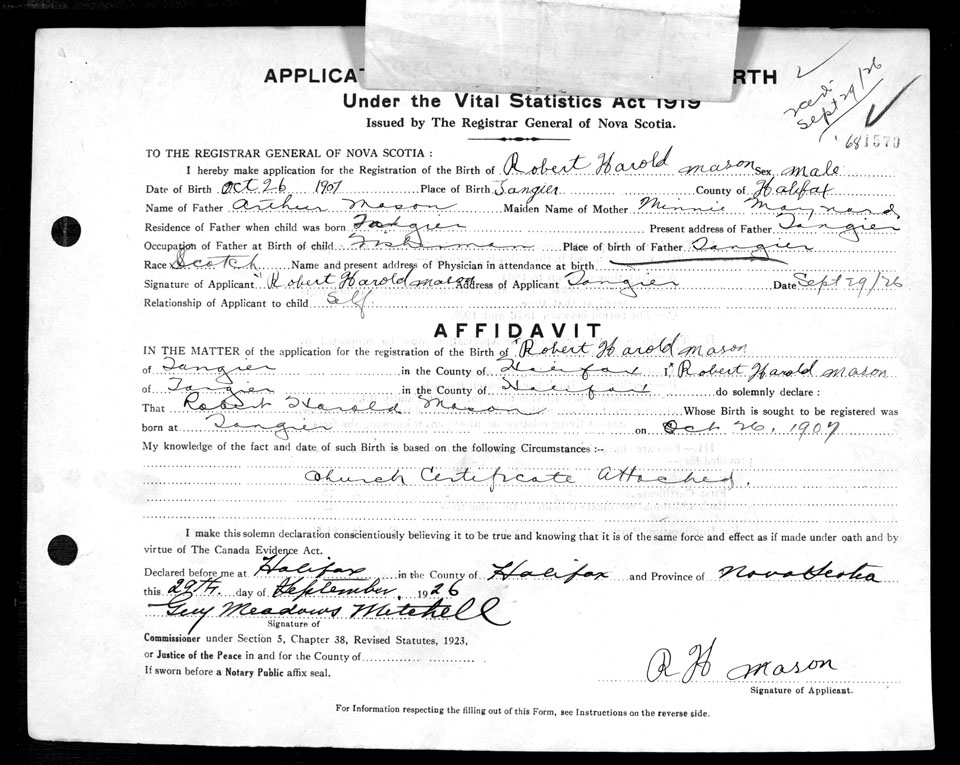 APPLICAT RTH
Under the Vital Statistics Act 1919
Issued by The Registrar General of Nova Scotia.
recd.
Sept 29/26
681570
TO THE REGISTRAR GENERAL OF NOVA SCOTIA :
I hereby make application for the Registration of the Birth of Robert Harold Mason Sex Male
Date of Birth Oct 26 1907 Place of Birth Tangier County of Halifax
Name of Father Arthur Mason Maiden Name of Mother Minnie Maynard
Residence of Father when child was born Tangier Present address of Father Tangier
Occupation of Father at Birth of child Fisherman Place of birth of Father Tangier
Race Scotch Name and present address of Physician in attendance at birth
Signature of Applicant Robert Harold Mason Address of Applicant Tangier Date Sept 29/26
Relationship of Applicant to child Self
AFFIDAVIT
IN THE MATTER of the application for the registration of the Birth of Robert Harold Mason
of Tangier in the County of Halifax I Robert Harold Mason
of Tangier in the County of Halifax do solemnly declare :
That Robert Harold Mason Whose Birth is sought to be registered was
born at Tangier on Oct 26, 1907
My knowledge of the fact and date of such Birth is based on the following Circumstances :--
Church Certificate Attached.
I make this solemn declaration conscientiously believing it to be true and knowing that it is of the same force and effect as if made under oath and by
virtue of The Canada Evidence Act.
Declared before me at Halifax in the County of Halifax and Province of Nova Scotia
this 29th. day of September, 1926
Guy Meadows Mitchell
Signature of
Commissioner under Section 5, Chapter 38, Revised Statutes, 1923,
or Justice of the Peace in and for the County of
If sworn before a Notary Public affix seal.
R H Mason
Signature of Applicant.
For Information respecting the filling out of this Form, see Instructions on the reverse side.